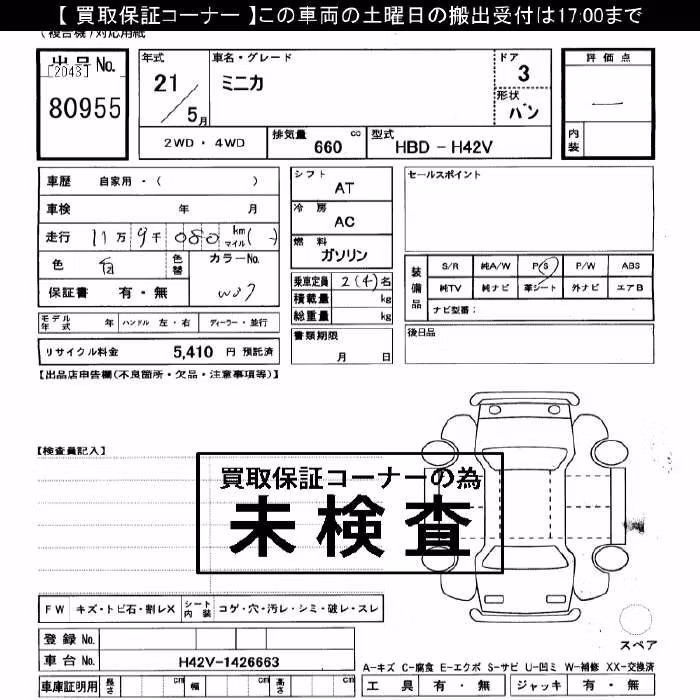 【 買取保証コーナー 】この車両の土曜日の搬出受付は17:00まで
(複合機)対応用紙
出品No.
[2043]
80955
年式
21 / 5月
車名・グレード
ミニカ
ドア
3
形状
バン
評価点
—
内装
2WD ・ 4WD
排気量 660 cc
型式 HBD - H42V
車歴 自家用 ・ ( )
車検 年 月
走行 11万 9千 080 km マイル ( )
色 白 色替
カラーNo.
W07
保証書 有・無
シフト
AT
冷房
AC
燃料
ガソリン
乗車定員 2(4)名
積載量 kg
総重量 kg
書類期限
月 日
セールスポイント
装備品
S/R 純A/W P/S P/W ABS
純TV 純ナビ 革シート 外ナビ エアB
ナビ型番:
後日品
モデル年式 年 ハンドル 左・右 ディーラー・並行
リサイクル料金 5,410 円 預託済
【出品店申告欄(不良箇所・欠品・注意事項等)】
【検査員記入】
買取保証コーナーの為
未検査
FW キズ・トビ石・割レX シート内装 コゲ・穴・汚レ・シミ・破レ・スレ
登録 No.
車台 No. H42V-1426663
車庫証明用 長さ cm 幅 cm 高さ cm
スペア
A-キズ C-腐食 E-エクボ S-サビ U-凹ミ W-補修 XX-交換済
工具 有・無 ジャッキ 有・無